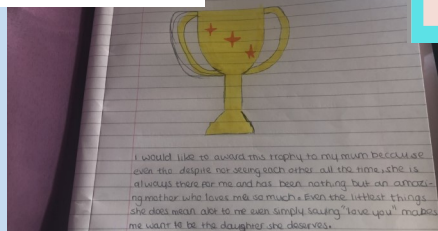 I would like to award this trophy to my mum because
even tho despite not seeing each other all the time, she is
always there for me and has been nothing but an amazi-
ng mother who loves me so much. Even the littlest things
she does mean alot to me even simply saying "love you" makes
me want to be the daughter she deserves.